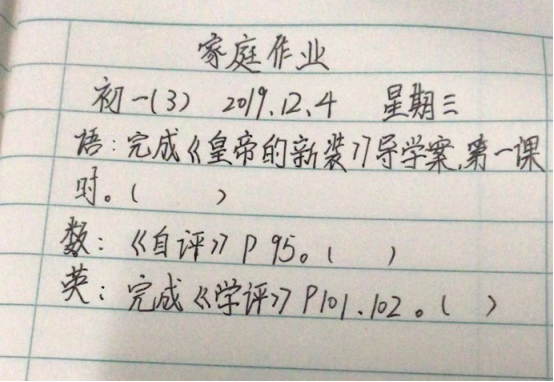 家庭作业
初一(3) 2019.12.4 星期三
语：完成《皇帝的新装》导学案.第一课
时。( )
数：《自评》P95。( )
英：完成《学评》P101.102。( )